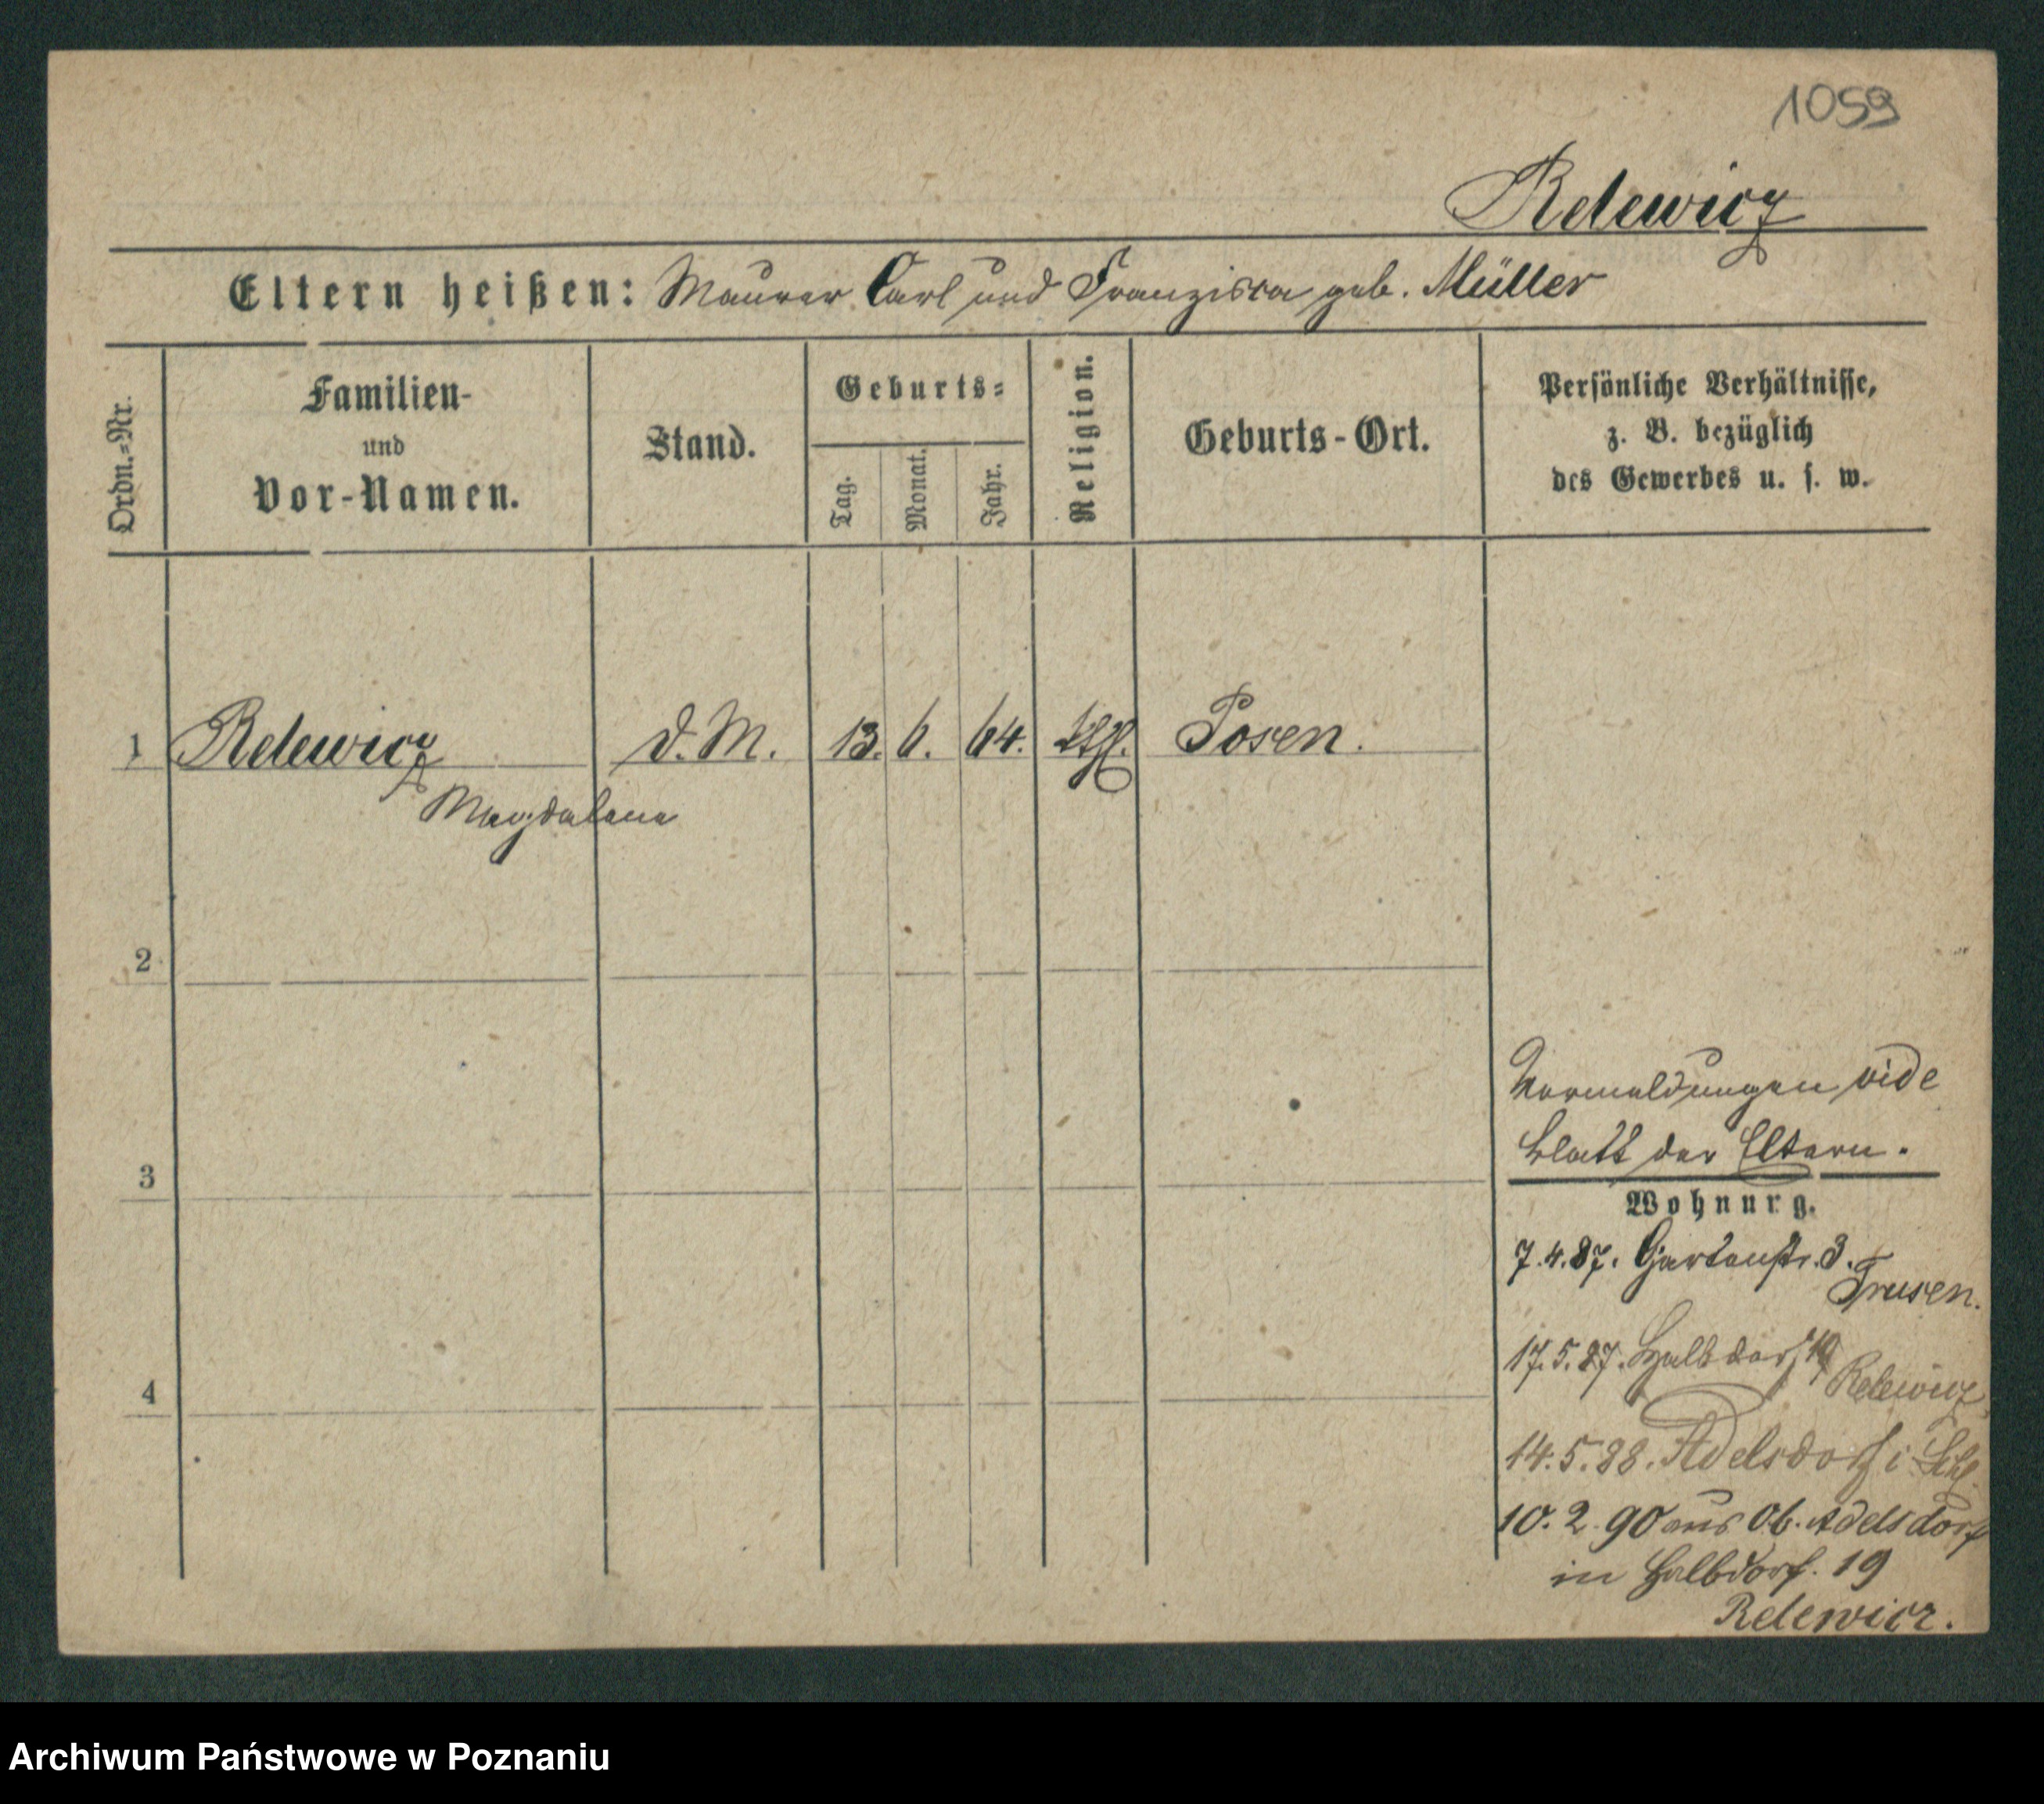 1059
Relewicz
Eltern heißen: Maurer Carl und Franziska geb. Müller
Ordn.=Nr.
Familien-
und
Vor-Namen.
Stand.
Geburts=
Tag.
Monat.
Jahr.
Religion.
Geburts-Ort.
Persönliche Verhältnisse,
z. B. bezüglich
des Gewerbes u. s. w.
1 Relewicz d. M. 13. 6. 64. kth. Posen.
Magdalena
2
3
4
Vormeldungen vide
Blatt der Eltern.
Wohnung.
7.4.87. Gartenstr. 3.
Trusen.
17.5.87. Halbdorf 19
Relewicz
14.5.88. Adelsdorf i. Schl.
10.2.90 aus Ob. Adelsdorf
in Halbdorf. 19
Relewicz.
Archiwum Państwowe w Poznaniu